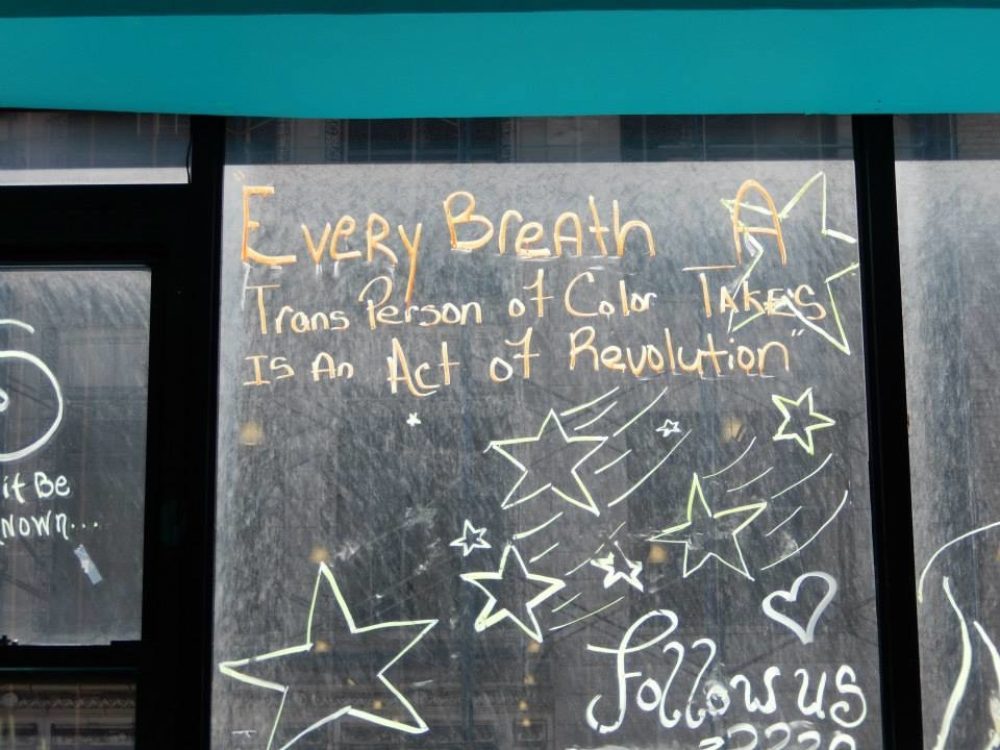 "Every Breath A
Trans Person of Color Takes
Is An Act of Revolution"
it Be
nown...
Follow us